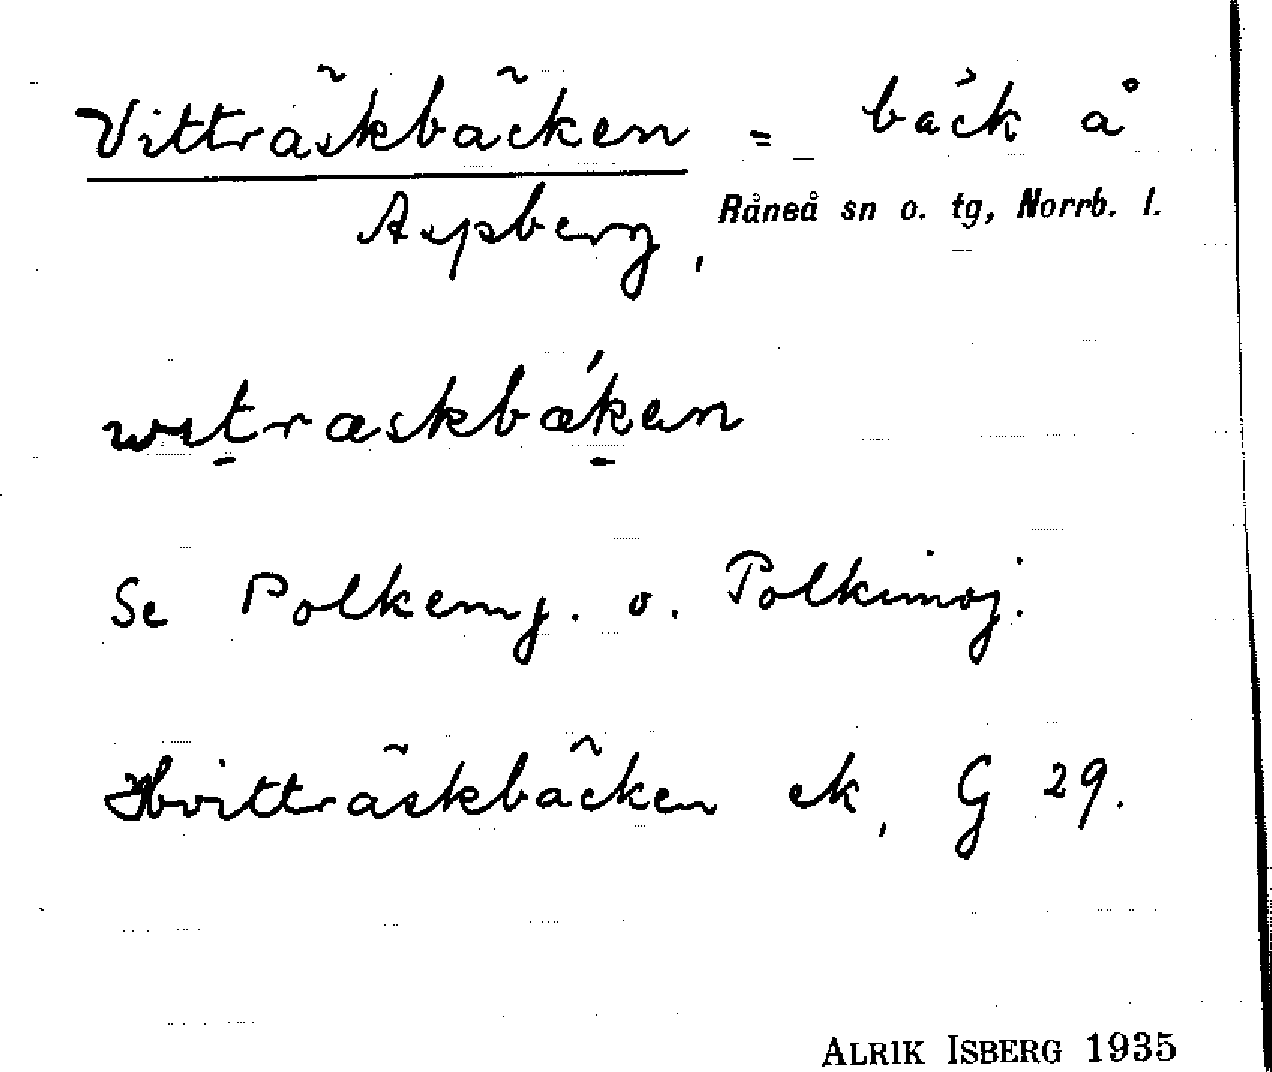 Vitträskbäcken = bäck å
Aspberg, Råneå sn o. tg, Norrb. l.
witræskbækən
Se Polkemj. o. Polkimoj.
Hvitträskbäcken ek, G 29.
ALRIK ISBERG 1935